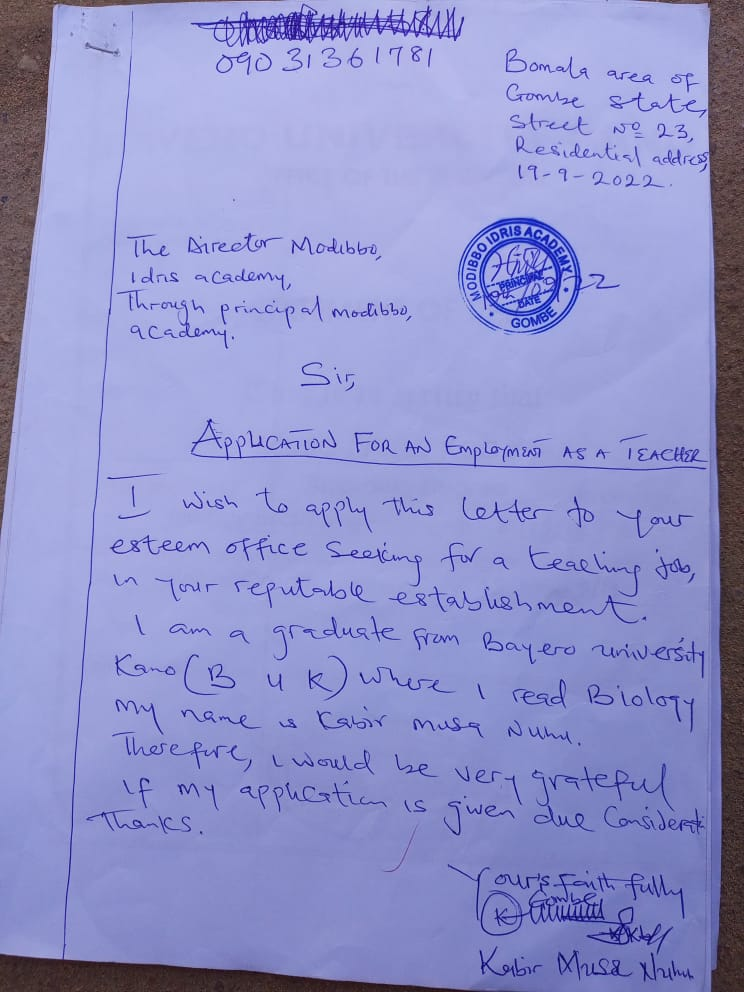 09031361781
Bomala area of
Gombe state,
Street No 23,
Residential address,
19-9-2022.
The Director Modibbo,
idris academy,
Through principal modibbo,
academy.
MODIBBO IDRIS ACADEMY
PRINCIPAL
DATE
GOMBE
Sir,
APPLICATION FOR AN EMPLOYMENT AS A TEACHER
I wish to apply this letter to your
esteem office seeking for a teaching job,
in your reputable establishment.
I am a graduate from Bayero university
Kano (B U K) where I read Biology
my name is Kabir musa Nuhu.
Therefore, I would be very grateful
if my application is given due Considerati
Thanks.
Your's Faithfully
Gombe
Kabir Musa Nuhu